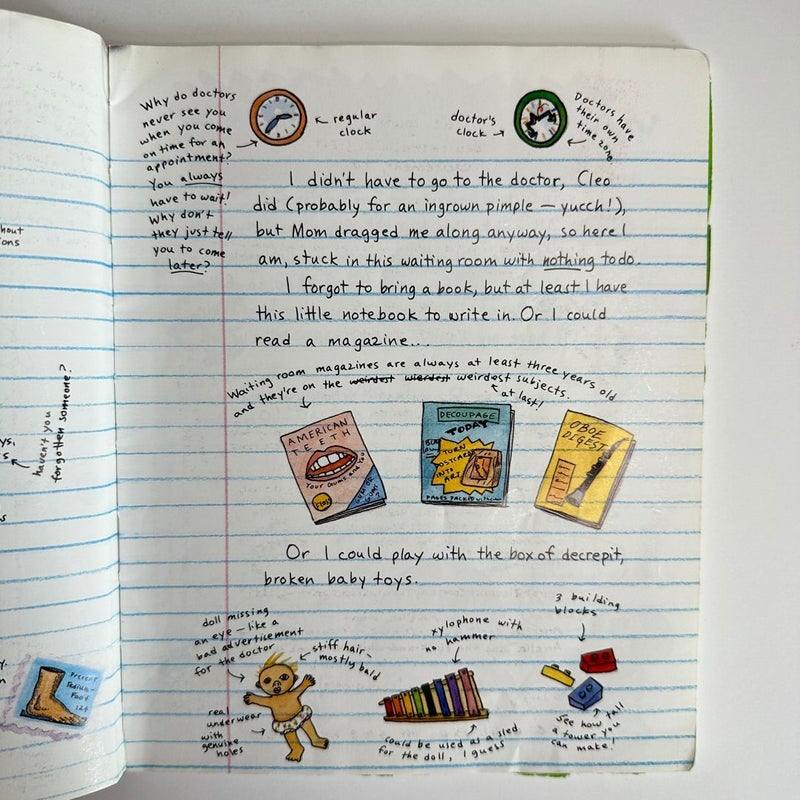 Why do doctors
never see you
when you come
on time for an
appointment?
You always
have to wait!
Why don't
they just tell
you to come
later?
regular
clock
doctor's
clock
Doctors have
their own
time zone.
I didn't have to go to the doctor, Cleo
did (probably for an ingrown pimple — yucch!),
but Mom dragged me along anyway, so here I
am, stuck in this waiting room with nothing to do.
I forgot to bring a book, but at least I have
this little notebook to write in. Or I could
read a magazine...
Waiting room magazines are always at least three years old
and they're on the weirdest wierdest weirdest subjects.
at last!
AMERICAN
TEETH
Your Gums and You
PLUS
DECOUPAGE
TODAY
TURN
POSTCARDS
INTO
ART
PAGES PACKED WITH
OBOE
DIGEST
Or I could play with the box of decrepit,
broken baby toys.
doll missing
an eye — like a
bad advertisement
for the doctor
stiff hair -
mostly bald
real
underwear
with
genuine
holes
xylophone with
no hammer
could be used as a sled
for the doll, I guess
3 building
blocks
see how tall
a tower you
can make!
hout
ions
haven't you
forgotten someone?
ys,
s
s
y.
n
Foot